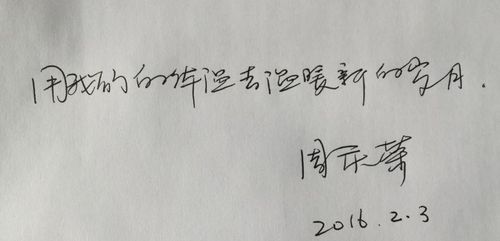 用我的的体温去温暖新的岁月.
周庆荣
2016.2.3